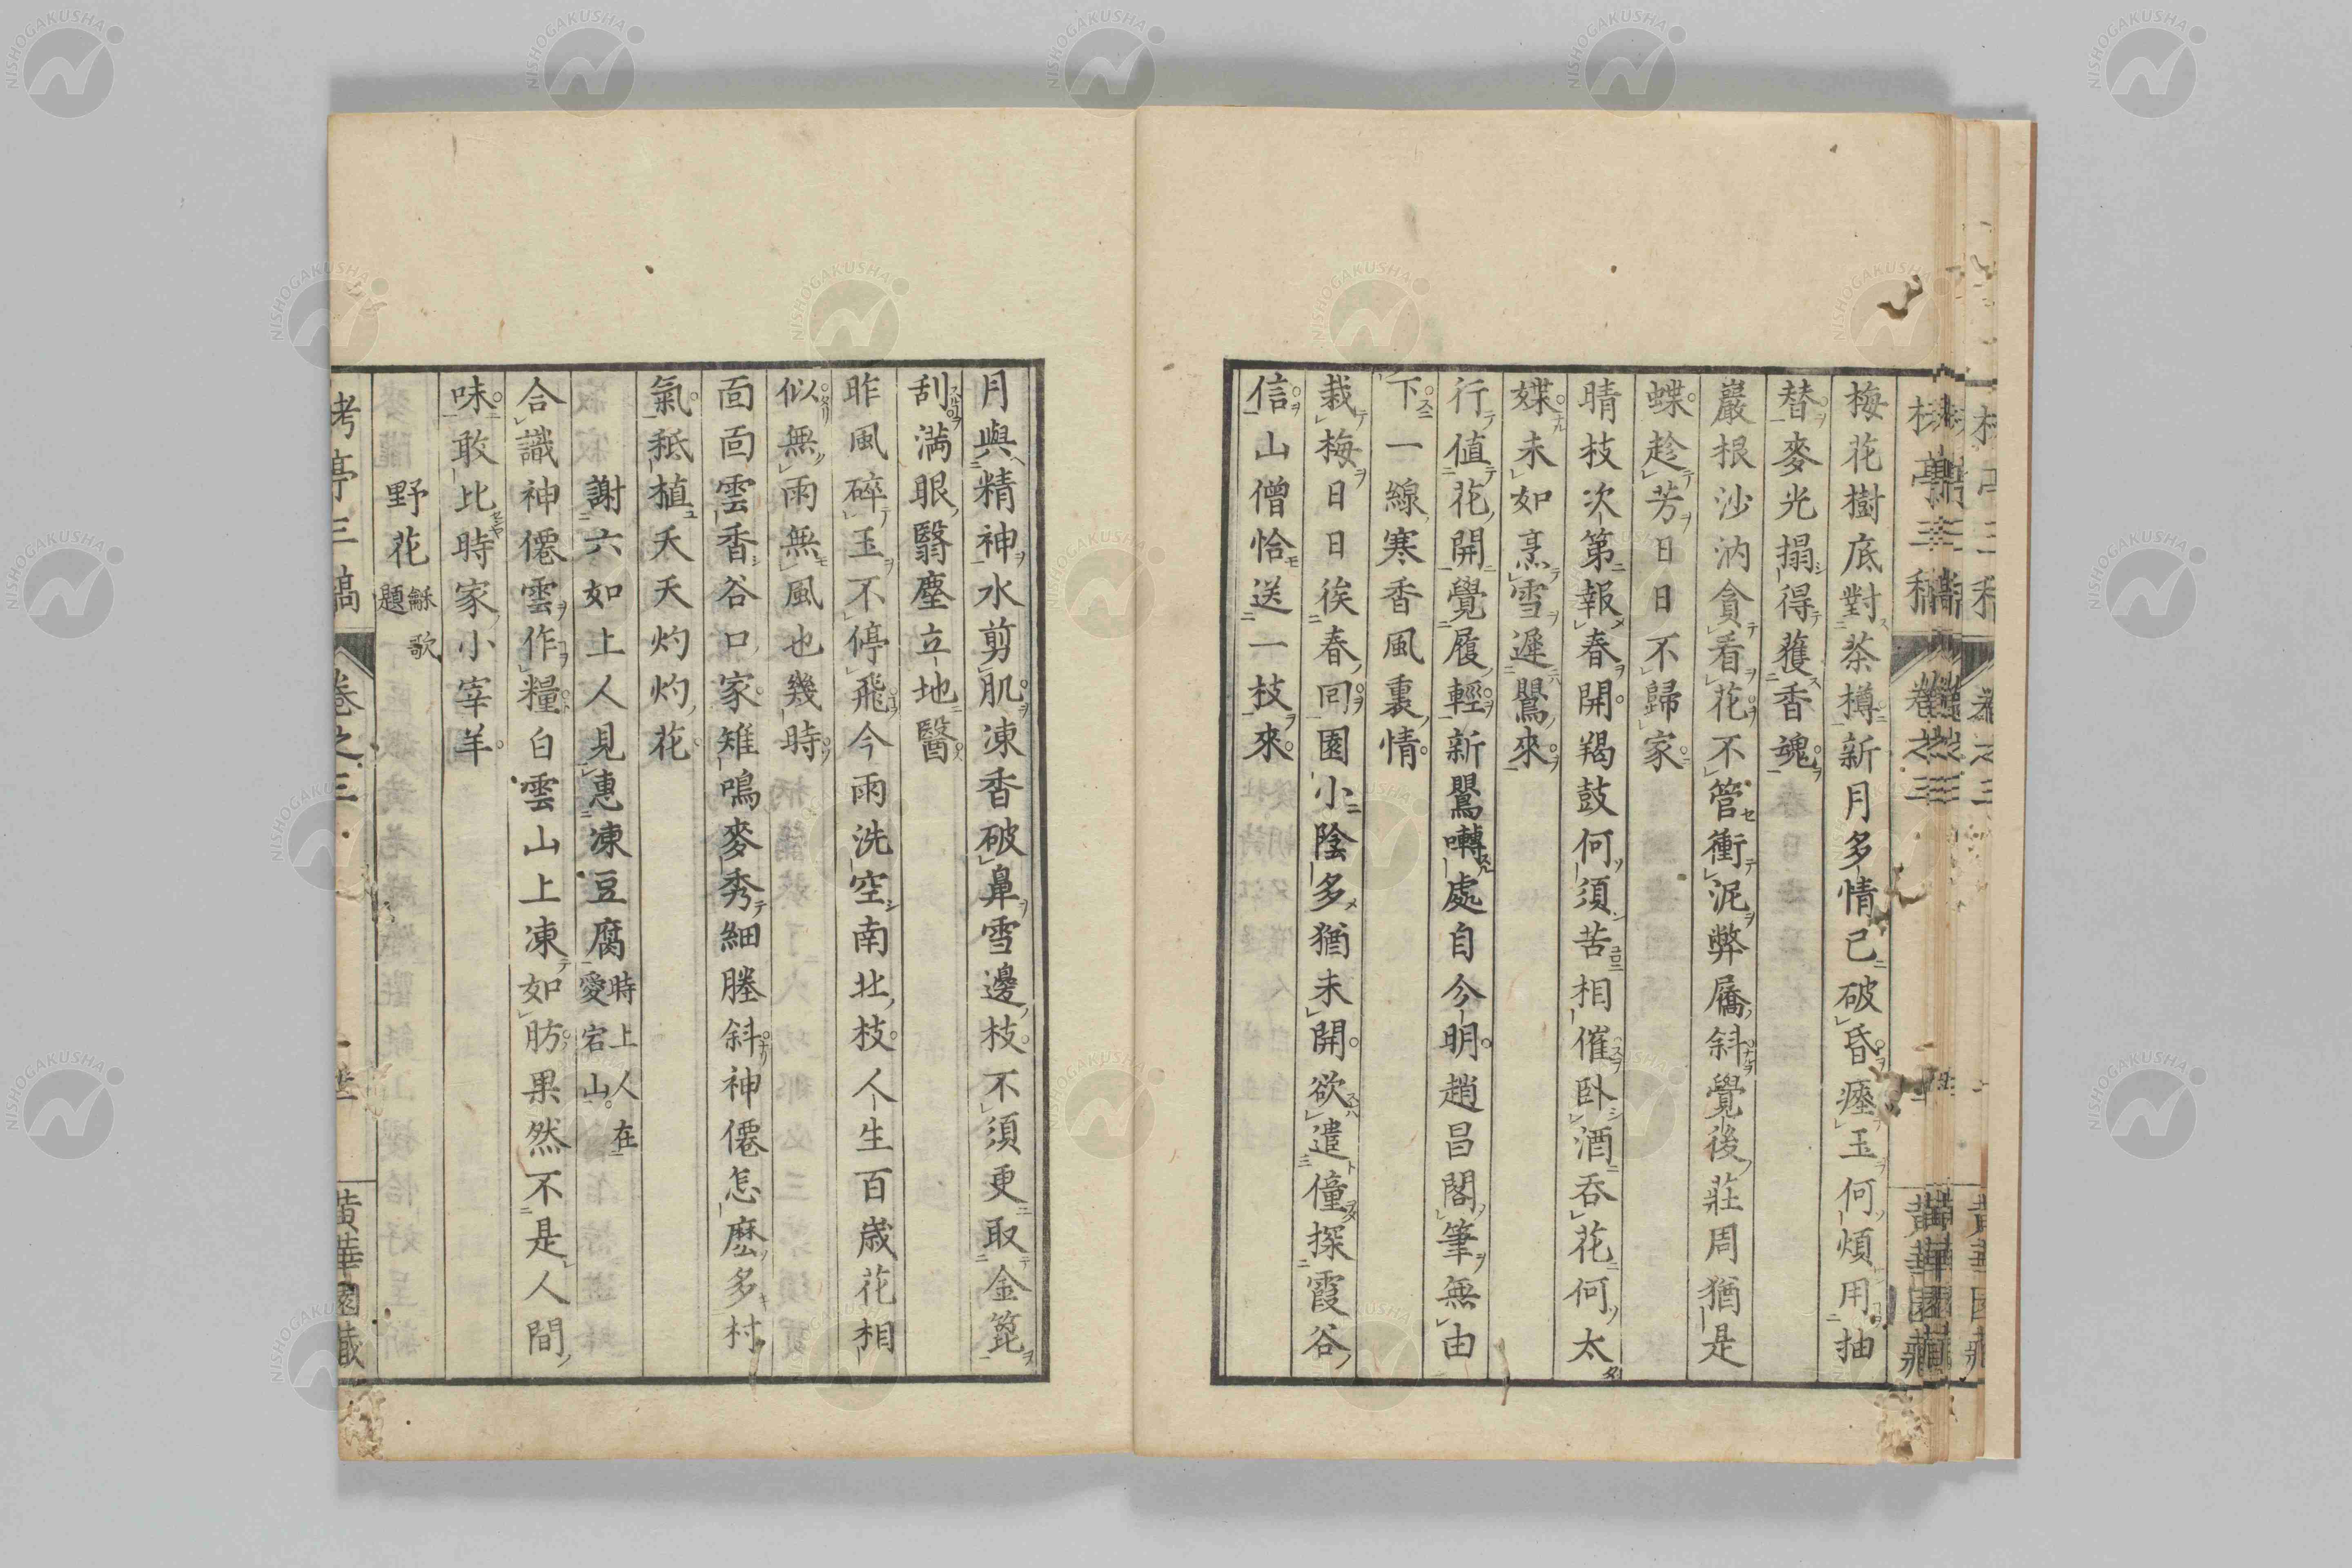 梅花樹底對茶樽新月多情已破昏瘞玉何煩用抽
替麥光搨得蕕香魂
巖根沙汭貪看花不管衝泥弊屩斜覺後莊周猶是
蝶趁芳日日不歸家
晴枝次第報春開羯鼓何須苦相催臥酒吞花何太
媟未如烹雪遲鸎來
行值花開覺履輕新鸎囀處自分明趙昌閣筆無由
下一線寒香風裏情
栽梅日日俟春回園小陰多猶未開欲遣僮探霞谷
信山僧恰送一枝來
月與精神水剪肌凍香破鼻雪邊枝不須更取金篦
刮滿眼翳塵立地醫
昨風碎玉不停飛今雨洗空南北枝人生百歲花相
似無雨無風也幾時
面面雲香谷口家雉鳴麥秀細塍斜神僊怎麼多村
氣秖植夭夭灼灼花
謝六如上人見惠凍豆腐時上人在愛宕山
合識神僊雲作糧白雲山上凍如肪果然不是人間
味敢比時家小宰羊
野花龢歌題
考亭三稿 卷之三 黃華園藏
NISHOGAKUSHA